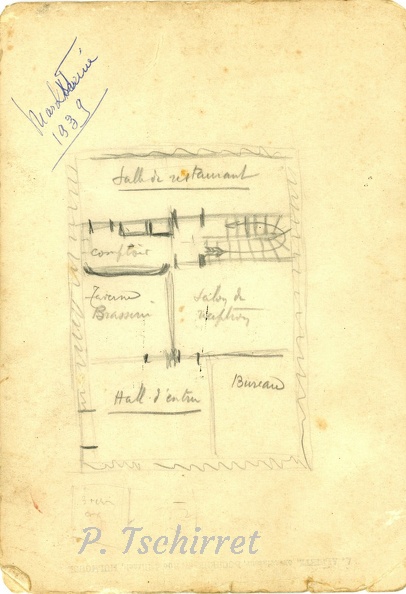 1939
Salle de restaurant
comptoir
Taverne
Brasserie
Salon de
réception
Hall d'entrée
Bureau
P. Tschirret